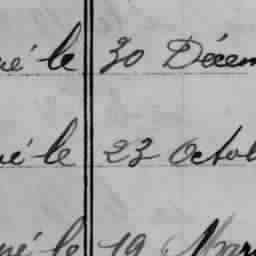 né le 30 Décem
né le 23 Octob
né le 19 Mars